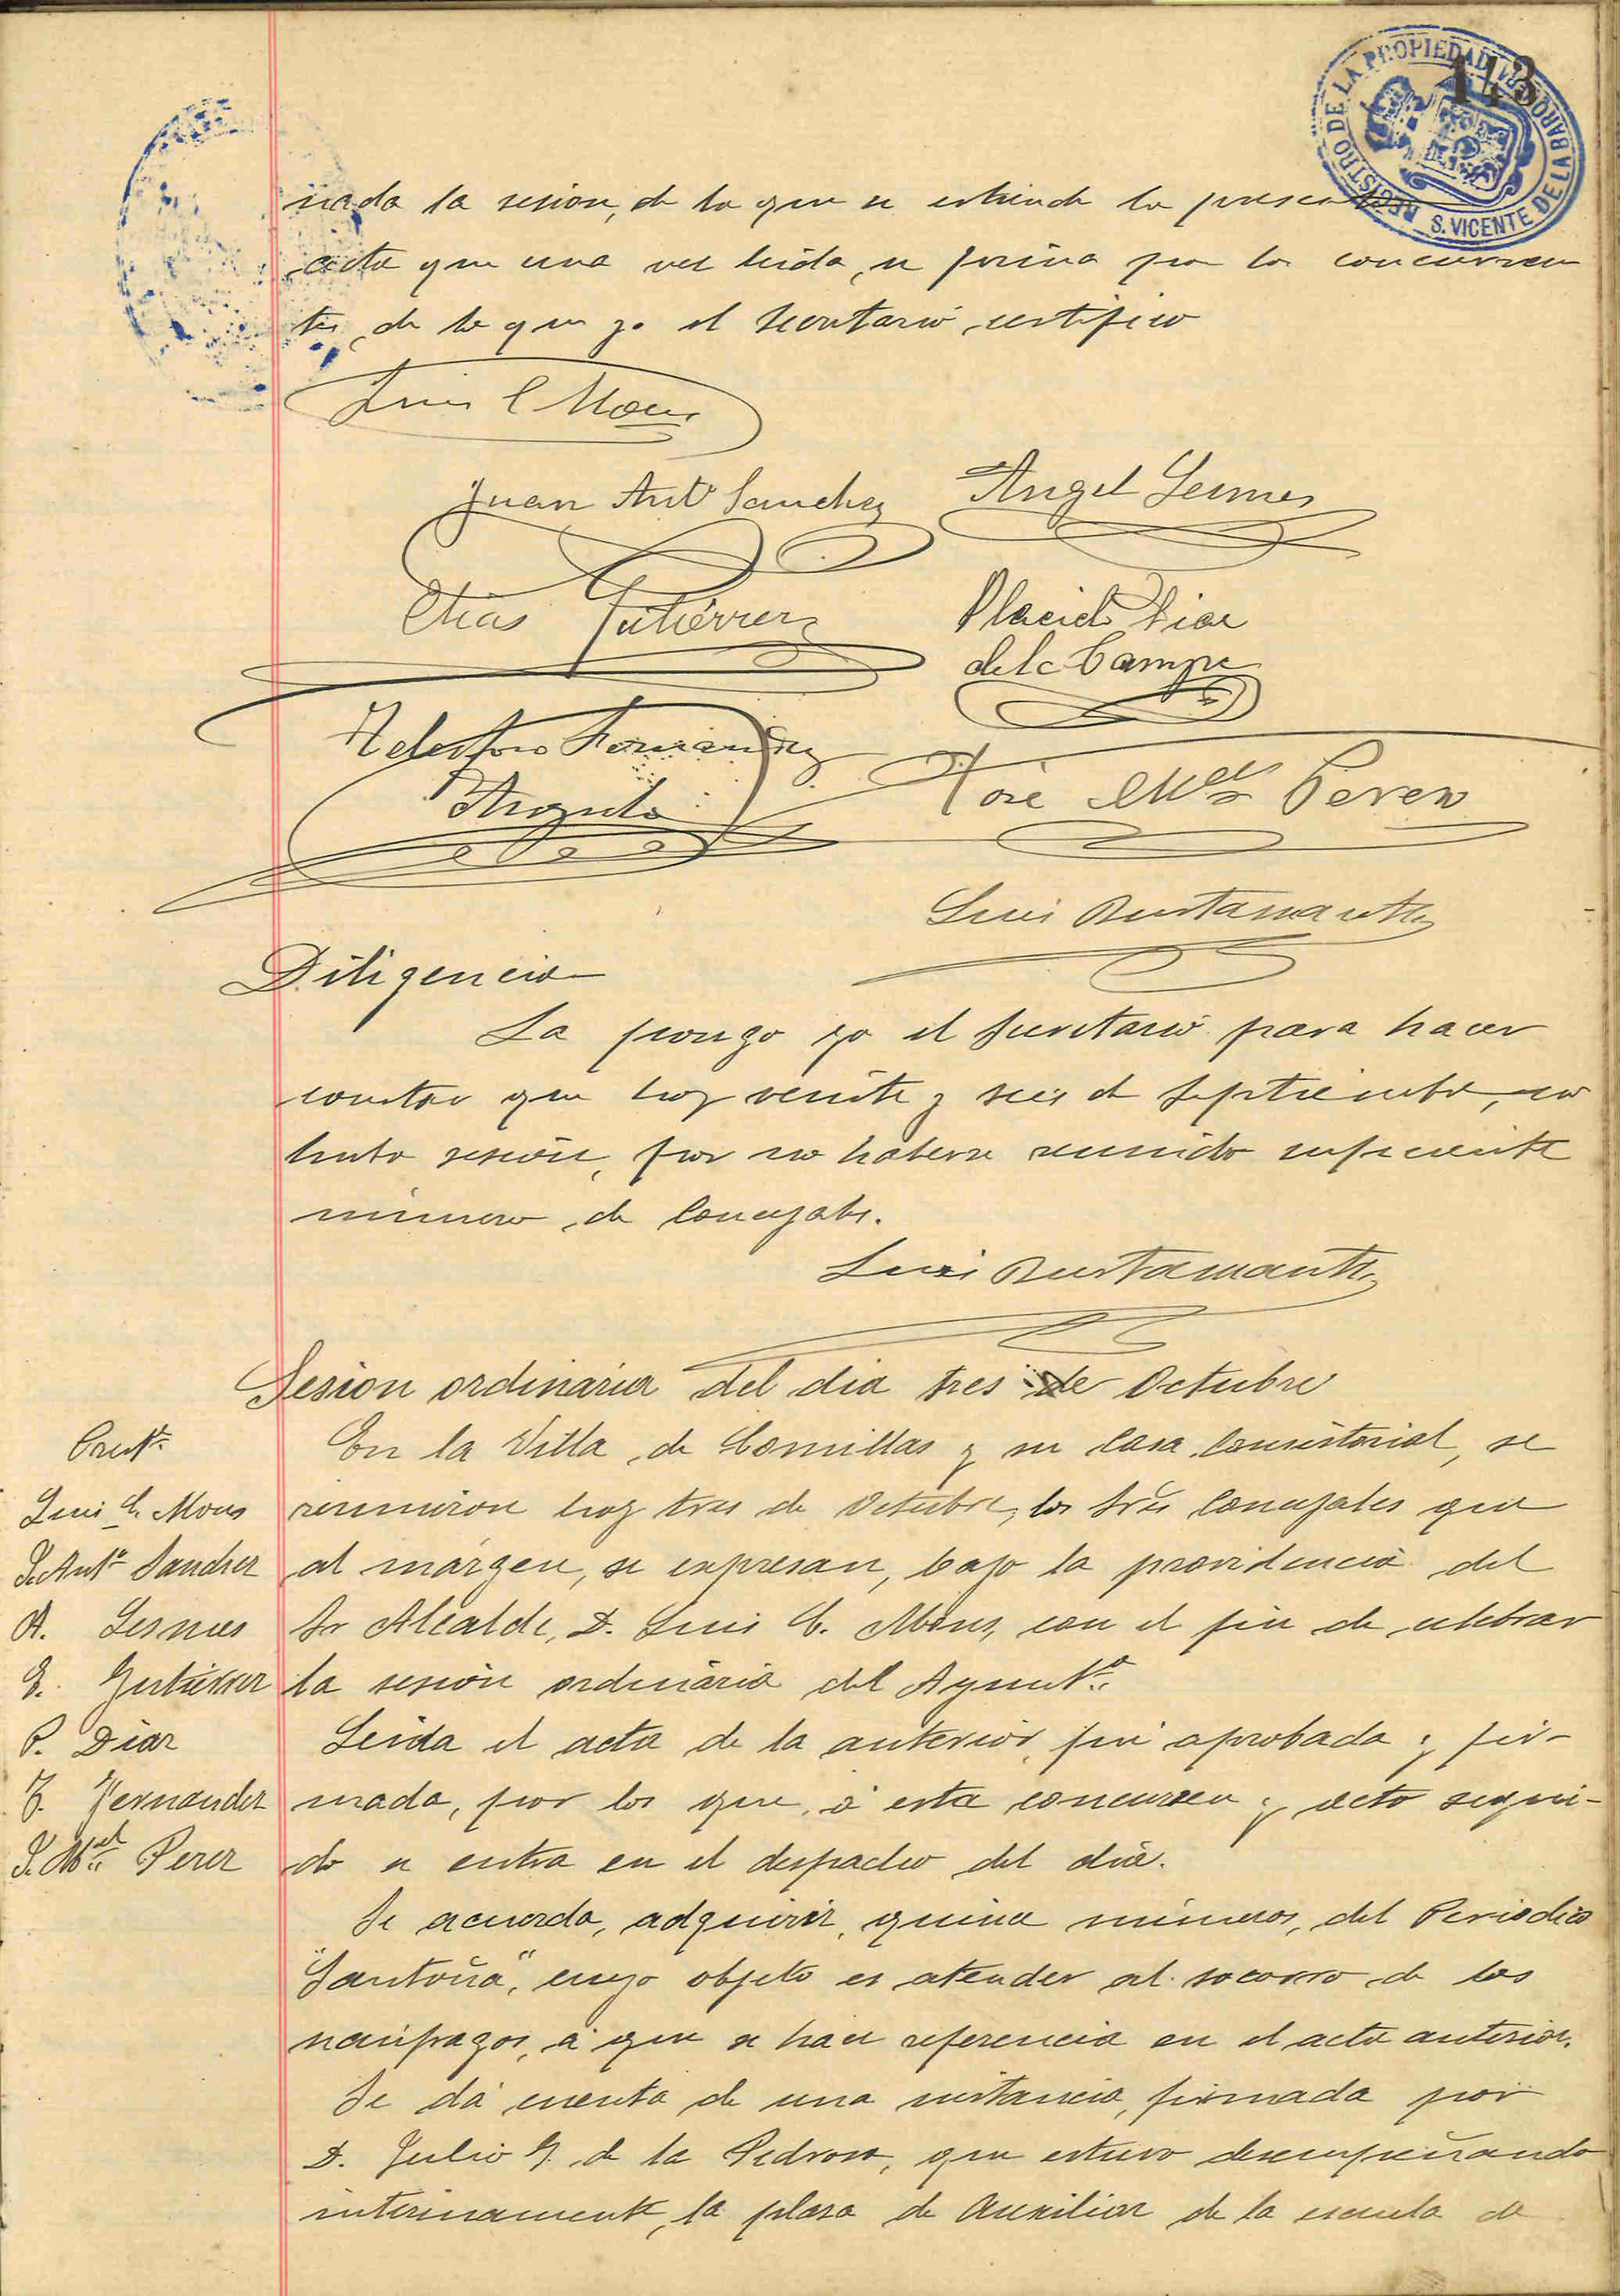 143
REGISTRO DE LA PROPIEDAD
S. VICENTE DE LA BARQUERA
nada la sesion, de lo que se extiende la presente
acta que una vez leida, se firma por los concurren
tes, de lo que yo el Secretario certifico
Luis C Mons
Juan Antº Sanchez
Angel
Elias Gutiérrez
Placido Diaz
de la Campa
Telesforo Fernandez
José Mel Perez
Luis Bustamante
Diligencia
La pongo yo el Secretario para hacer
constar que hoy veinte y seis de Septiembre, no
hubo sesión, por no haberse reunido suficiente
número de Concejales.
Luis Bustamante
Sesion ordinaria del dia tres de Octubre
En la Villa de Comillas y su Casa Consistorial, se
reunieron hoy tres de Octubre, los Sres Concejales que
al márgen, se expresan, bajo la providencia del
Sr Alcalde, D. Luis C. Mons, con el fin de celebrar
la sesión ordinaria del Ayuntº.
Luis C. Mons
J. Antº Sanchez
A.
E. Gutierrez
P. Diaz
T. Fernandez
J. Mel Perez
Leida el acta de la anterior, fué aprobada y fir-
mada, por los que, á esta concurren y acto segui-
do se entra en el despacho del dia.
Se acuerda, adquirir, quince números, del Periodico
"Santoña", cuyo objeto es atender al socorro de los
naúfragos, á que se hace referencia en el acta anterior.
Se dá cuenta de una instancia, firmada por
D. Julio G. de la Pedrosa, que estuvo desempeñando
interinamente, la plaza de Auxiliar de la escuela de